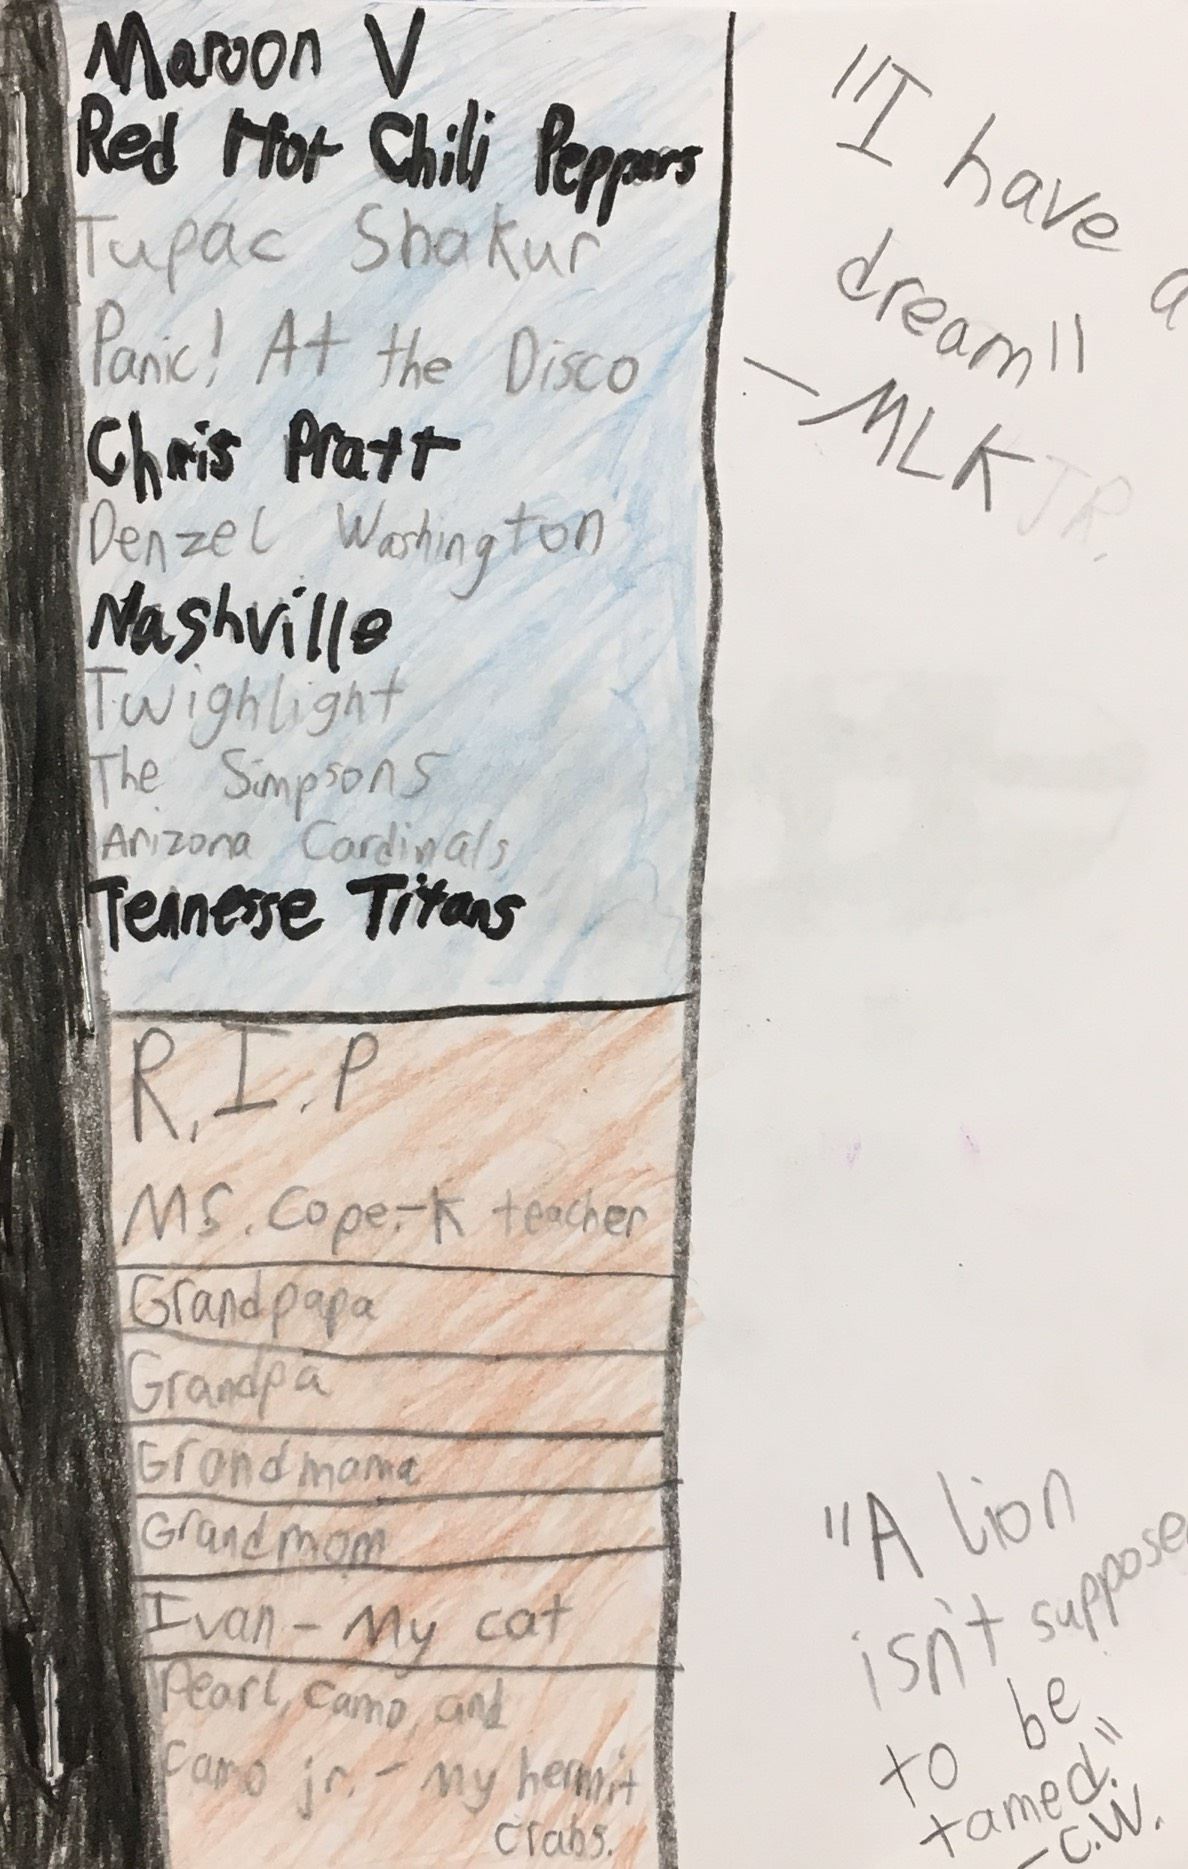 Maroon V
Red Hot Chili Peppers
Tupac Shakur
Panic! At the Disco
Chris Pratt
Denzel Washington
Nashville
Twighlight
The Simpsons
Arizona Cardinals
Tennesse Titans
R.I.P
MS. Cope-K teacher
Grandpapa
Grandpa
Grandmama
Grandmom
Ivan - My cat
Pearl, camo, and
camo jr. - My hermit
crabs.
"I have a
dream"
-MLK JR.
"A lion
isn't suppose
to be
tamed."
-C.W.